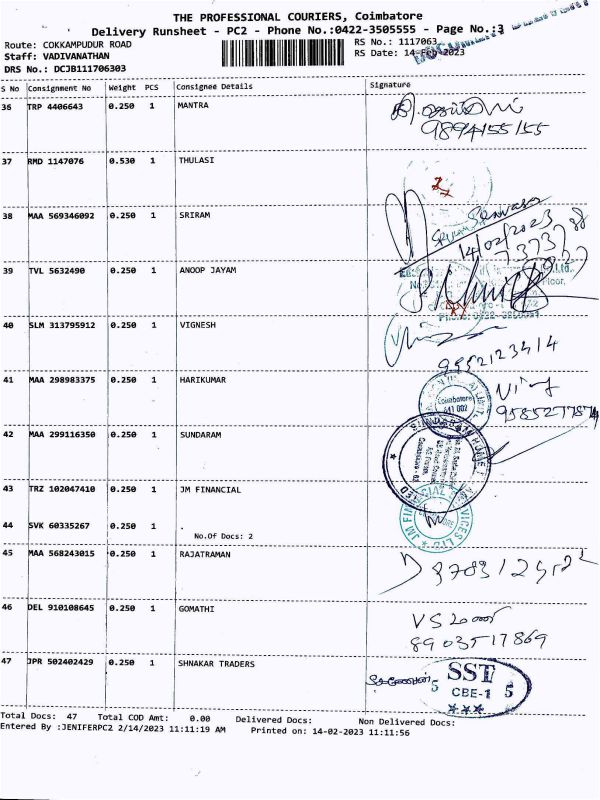 THE PROFESSIONAL COURIERS, Coimbatore
Delivery Runsheet - PC2 - Phone No.:0422-3505555 - Page No.:3
Route: COKKAMPUDUR ROAD
RS No.: 1117063
Staff: VADIVANATHAN
RS Date: 14-Feb-2023
DRS No.: DCJB111706303
S No Consignment No Weight PCS Consignee Details Signature
36 TRP 4406643 0.250 1 MANTRA
9894155155
37 RMD 1147076 0.530 1 THULASI
38 MAA 569346092 0.250 1 SRIRAM
14/02/2023
39 TVL 5632490 0.250 1 ANOOP JAYAM
40 SLM 313795912 0.250 1 VIGNESH
9952123414
41 MAA 298983375 0.250 1 HARIKUMAR
Coimbatore
641 002
42 MAA 299116350 0.250 1 SUNDARAM
43 TRZ 102047410 0.250 1 JM FINANCIAL
44 SVK 60335267 0.250 1
No.Of Docs: 2
45 MAA 568243015 0.250 1 RAJATRAMAN
46 DEL 910108645 0.250 1 GOMATHI
VS மணி
8903517869
47 JPR 502402429 0.250 1 SHNAKAR TRADERS
SST
5 CBE-1 5
Total Docs: 47 Total COD Amt: 0.00 Delivered Docs: Non Delivered Docs:
Entered By :JENIFERPC2 2/14/2023 11:11:19 AM Printed on: 14-02-2023 11:11:56